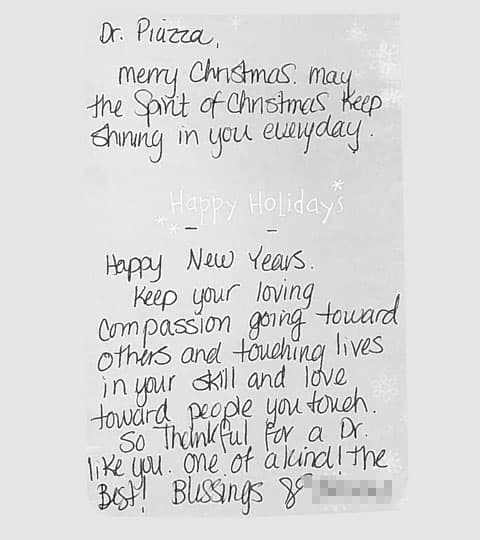 Dr. Piazza,
merry Christmas. may
the Spirit of Christmas keep
Shining in you everyday.
Happy Holidays
Happy New Years.
Keep your loving
Compassion going toward
others and touching lives
in your skill and love
toward people you touch.
So Thankful for a Dr.
like you. One of a kind! the
Best! Blessings